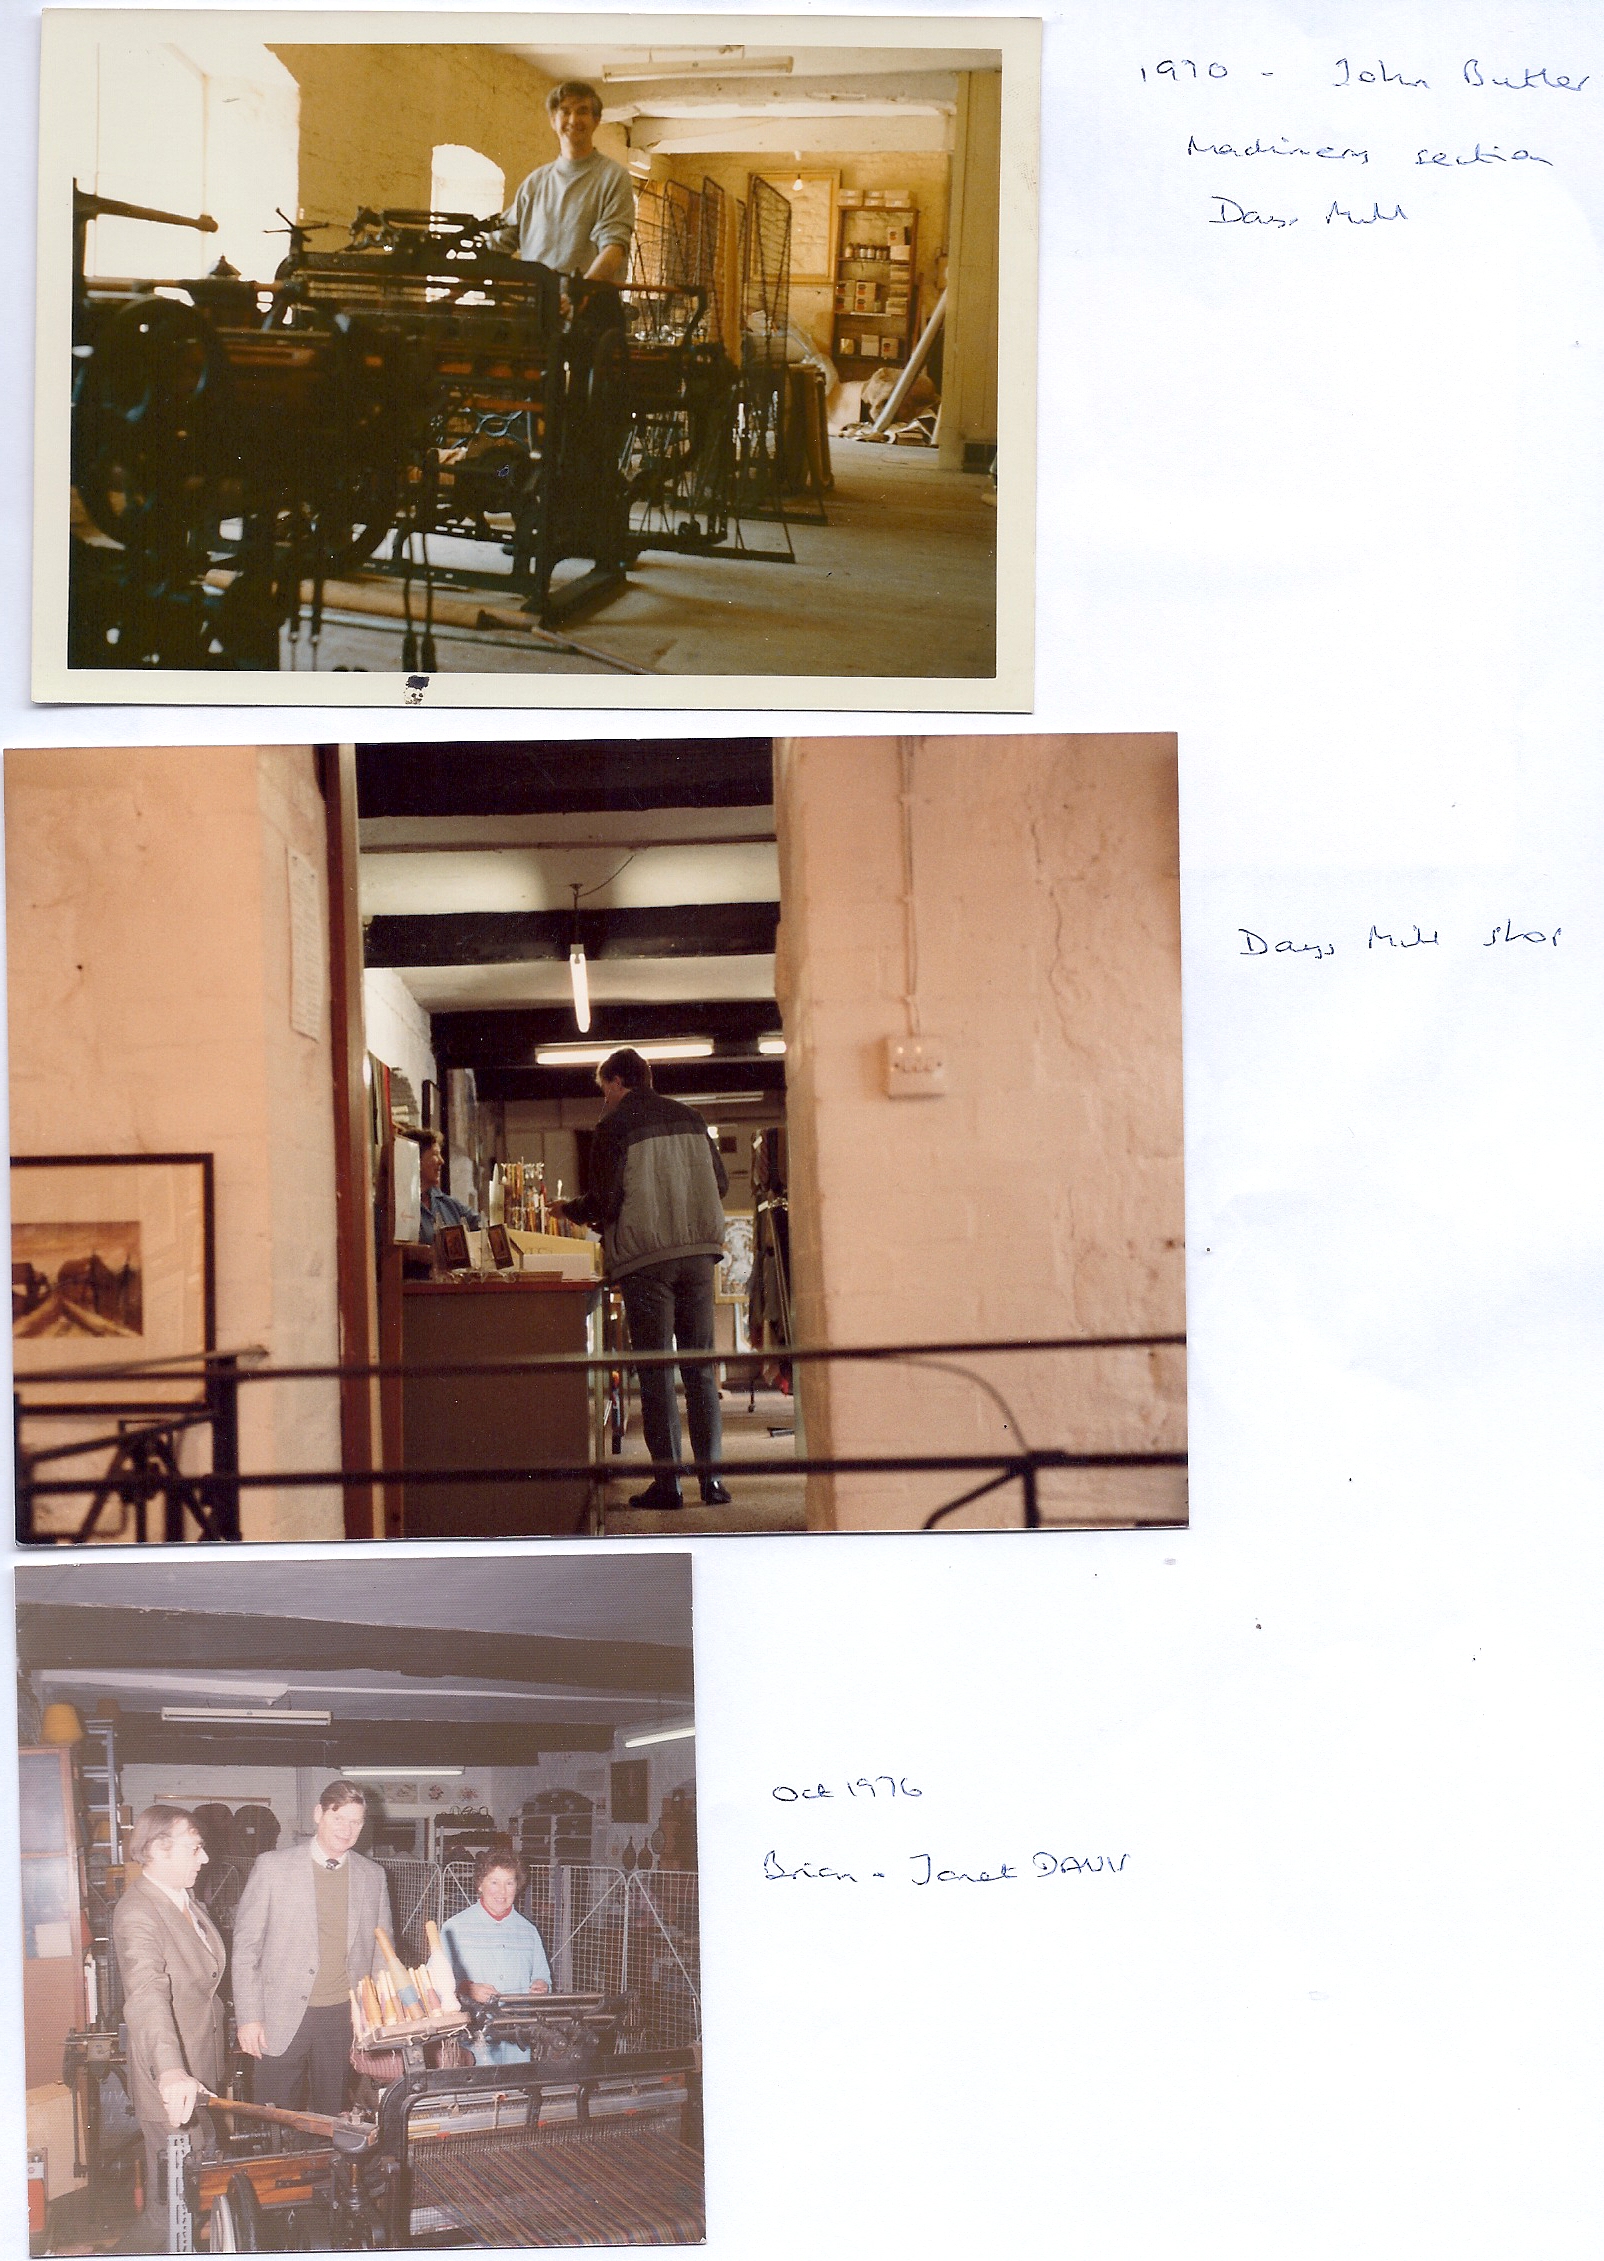 1970 - John Butler
Machinery section
Days Mill
Days Mill shop
Oct 1976
Brian - Janet